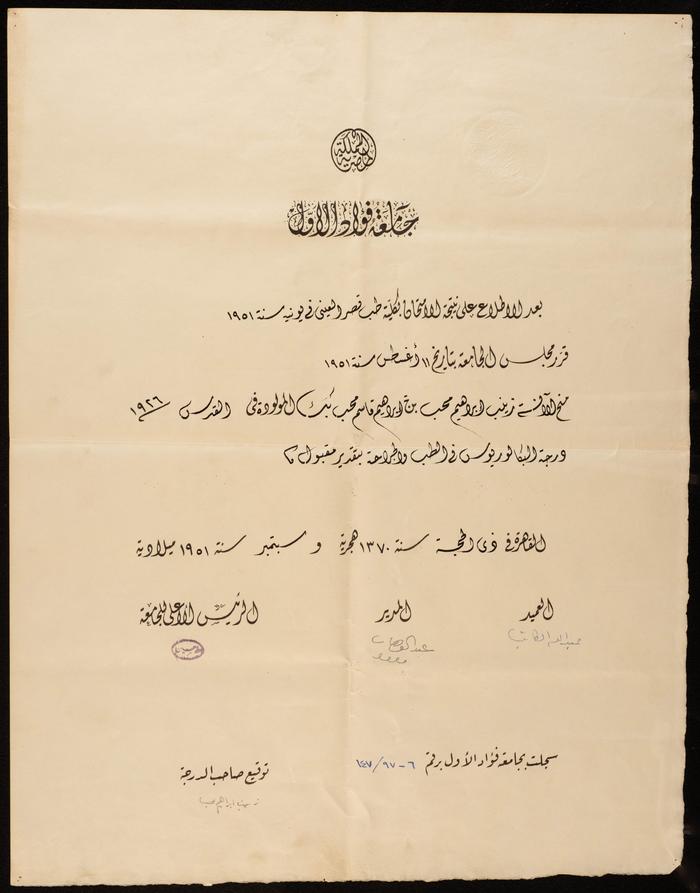 المملكة المصرية
جامعة فؤاد الأول
بعد الاطلاع على نتيجة الامتحان بكلية طب قصر العينى فى يونيه سنة ١٩٥١
قرر مجلس الجامعة بتاريخ ١١ أغسطس سنة ١٩٥١
منح الآنسة زينب ابراهيم محب بنت ابراهيم قاسم محب بك المولودة فى القدس ١٩٢٦
درجة البكالوريوس فى الطب والجراحة بتقدير مقبول
القاهرة فى ذى الحجة سنة ١٣٧٠ هجرية و سبتمبر سنة ١٩٥١ ميلادية
العميد المدير الرئيس الأعلى للجامعة
سجلت بجامعة فؤاد الأول برقم ٦-٩٧/١٤٧
توقيع صاحب الدرجة
زينب ابراهيم محب